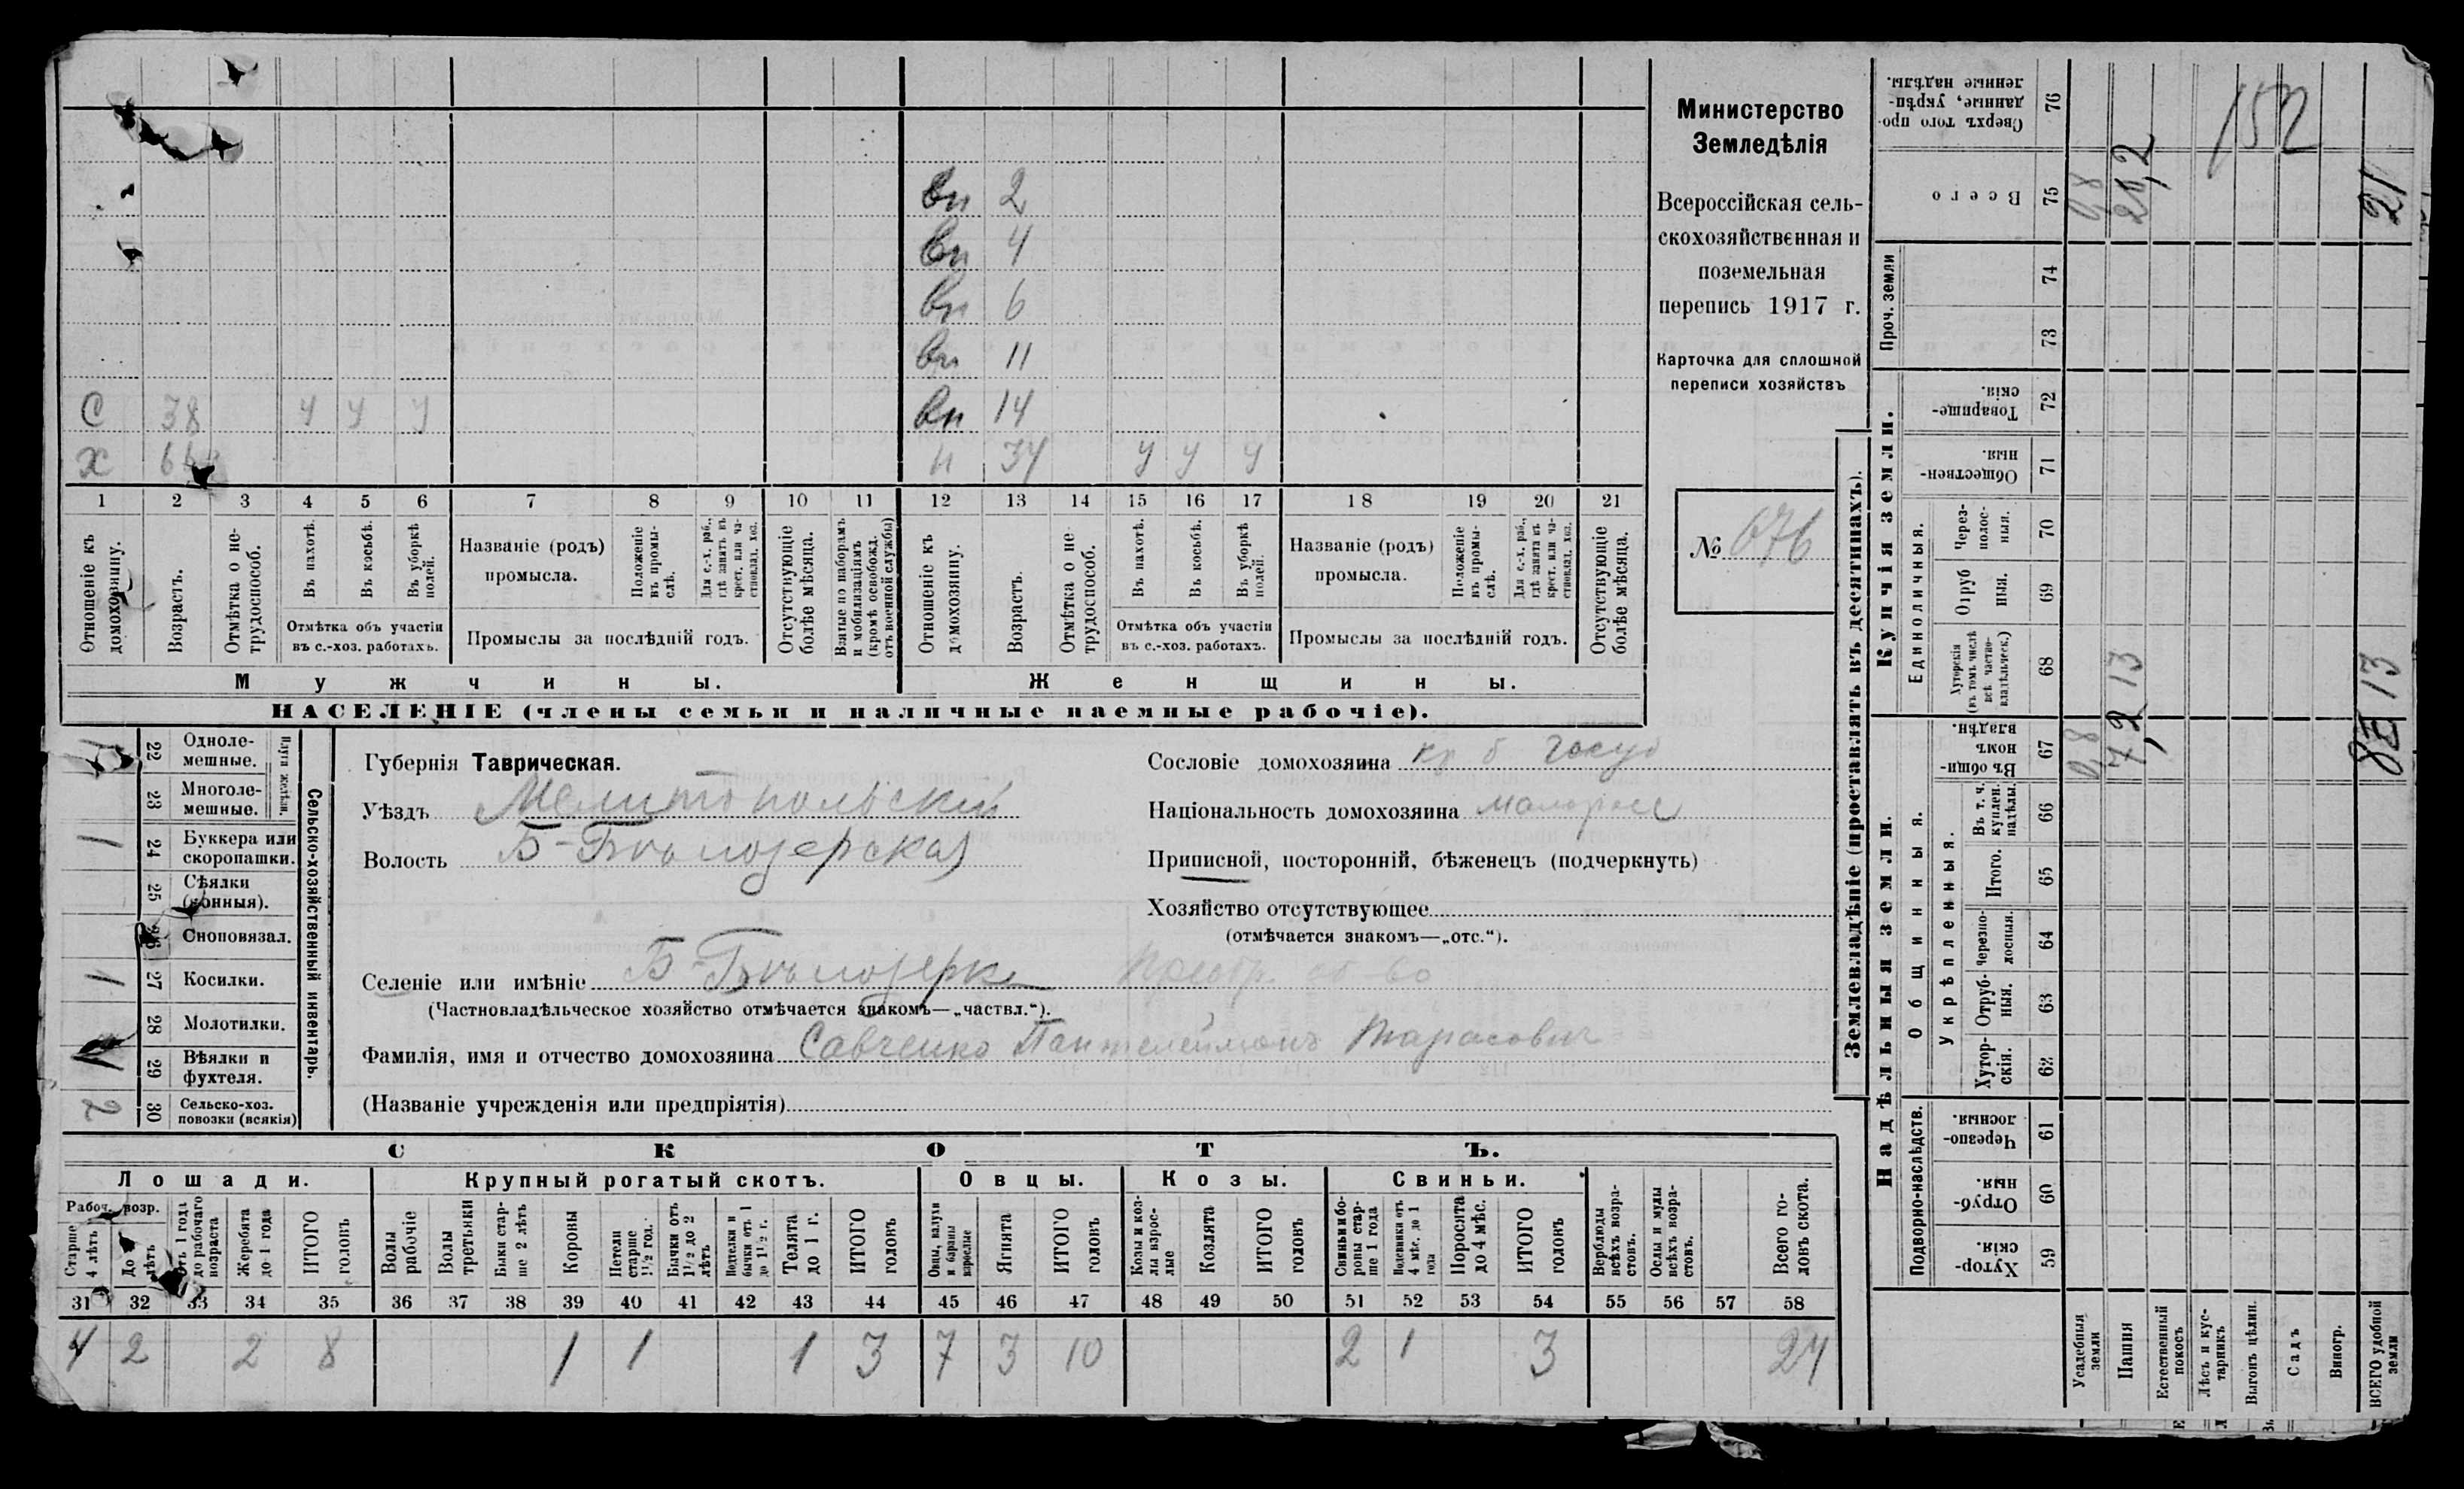 вп 2
вп 4
вп 6
вп 11
С 38 у у у вп 14
Х н 34 у у у
1 2 3 4 5 6 7 8 9 10 11 12 13 14 15 16 17 18 19 20 21
Отношеніе къ домохозяину.
Возрастъ.
Отмѣтка о нетрудоспособ.
Въ пахотѣ.
Въ косьбѣ.
Въ уборкѣ полей.
Отмѣтка объ участіи
въ с.-хоз. работахъ.
Названіе (родъ)
промысла.
Положеніе въ промыслѣ.
Для с.-х. раб., гдѣ занятъ въ крест. или частновлад. хоз.
Промыслы за послѣдній годъ.
Отсутствующіе болѣе мѣсяца.
Взятые по наборамъ и мобилизаціямъ (кромѣ освобожд. отъ военной службы)
Отношеніе къ домохозяину.
Возрастъ.
Отмѣтка о нетрудоспособ.
Въ пахотѣ.
Въ косьбѣ.
Въ уборкѣ полей.
Отмѣтка объ участіи
въ с.-хоз. работахъ.
Названіе (родъ)
промысла.
Положеніе въ промыслѣ.
Для с.-х. раб., гдѣ занята въ крест. или частновлад. хоз.
Промыслы за послѣдній годъ.
Отсутствующіе болѣе мѣсяца.
Мужчины. Женщины.
НАСЕЛЕНІЕ (члены семьи и наличные наемные рабочіе).
Министерство
Земледѣлія
Всероссійская сель-
скохозяйственная и
поземельная
перепись 1917 г.
Карточка для сплошной
переписи хозяйствъ
№ 676
22 Одноле-
мешные.
23 Многоле-
мешные.
Плуги желѣзн.
1 24 Буккера или
скоропашки.
25 Сѣялки
(конныя).
26 Сноповязал.
1 27 Косилки.
28 Молотилки.
1 29 Вѣялки и
фухтеля.
2 30 Сельско-хоз.
повозки (всякія)
Сельско-хозяйственный инвентарь.
Губернія Таврическая.
Уѣздъ Мелитопольскій
Волость Б-Бѣлозерская
Сословіе домохозяина кр б госуд
Національность домохозяина малоросс
Приписной, посторонній, бѣженецъ (подчеркнуть)
Хозяйство отсутствующее
(отмѣчается знакомъ—„отс.“).
Селеніе или имѣніе Б-Бѣлозерка
(Частновладѣльческое хозяйство отмѣчается знакомъ—„частвл.“).
Фамилія, имя и отчество домохозяина Савченко Пантелеймонъ Тарасович
(Названіе учрежденія или предпріятія)
СКОТЪ.
Лошади. Крупный рогатый скотъ. Овцы. Козы. Свиньи.
Рабоч. возр.
Старше 4 лѣтъ
До 4 лѣтъ
Отъ 1 года до рабочаго возраста
Жеребята до 1 года
ИТОГО головъ
Волы рабочіе
Волы третьяки
Быки старше 2 лѣтъ
Коровы
Нетели старше 1½ год.
Бычки отъ 1½ до 2 лѣтъ
Подтелки и бычки отъ 1 до 1½ г.
Телята до 1 г.
ИТОГО головъ
Овцы, валухи и бараны взрослые
Ягнята
ИТОГО головъ
Козы и козлы взрослые
Козлята
ИТОГО головъ
Свиньи и боровы старше 1 года
Подсвинки отъ 4 мѣс. до 1 года
Поросята до 4 мѣс.
ИТОГО головъ
Верблюды всѣхъ возрастовъ.
Ослы и мулы всѣхъ возрастовъ.
Всего головъ скота.
31 32 33 34 35 36 37 38 39 40 41 42 43 44 45 46 47 48 49 50 51 52 53 54 55 56 57 58
4 2 2 8 1 1 1 3 7 3 10 2 1 3 24
Землевладѣніе (проставлять въ десятинахъ).
Надѣльныя земли. Купчія земли.
Подворно-наслѣдств.
Общинныя.
Укрѣпленныя.
Единоличныя.
Проч. земли
Хуторскія. 59
Отрубныя. 60
Черезполосныя. 61
Хуторскія. 62
Отрубныя. 63
Черезполосныя. 64
Итого. 65
Въ т. ч. куплен. надѣлы. 66
Въ общинномъ владѣн. 67
Хуторскія (въ томъ числѣ всѣ частновладѣльческ.) 68
Отрубныя. 69
Черезполосныя. 70
Общественныя. 71
Товарищескія. 72
73
74
Всего 75
Сверхъ того проданные, укрѣпленные надѣлы. 76
Усадебныя земли 0,8 0,8
Пашня 7,2 13 20,2
Естественный покосъ
Лѣсъ и кустарникъ
Выгонъ цѣлин.
Садъ
Виногр.
ВСЕГО удобной земли 8 13 21
152